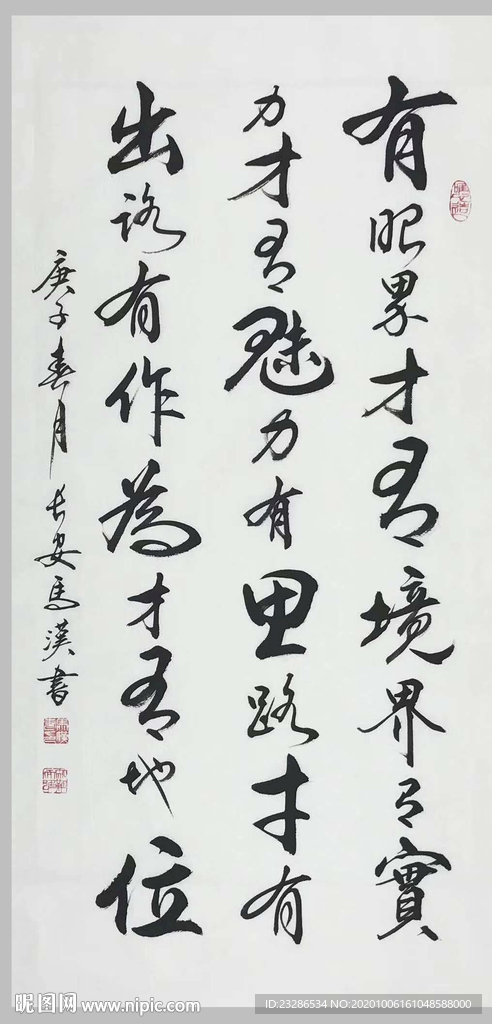 有眼界才有境界有實
力才有魅力有思路才有
出路有作為才有地位
庚子春月長安馬漢書
昵图网 www.nipic.com
ID:23286534 NO:20201006161048588000